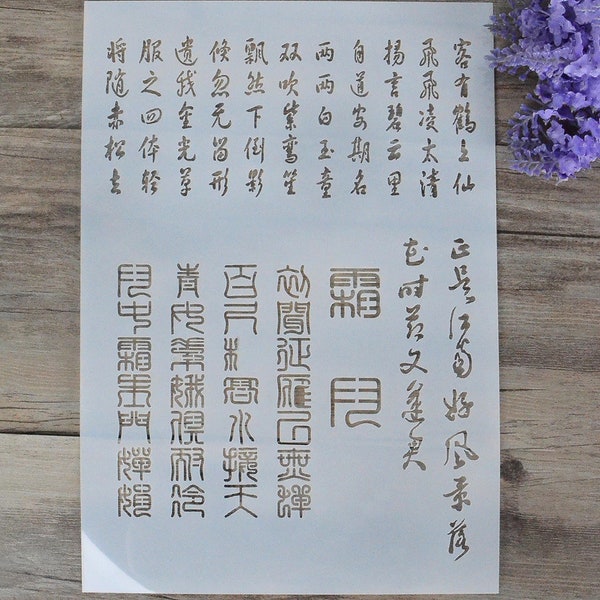 客有鶴上仙
飛飛凌太清
揚言碧云里
自道安期名
两两白玉童
双吹紫鸾笙
飘然下倒影
倏忽无留形
遗我金光草
服之四体轻
将随赤松去
正是江南好风景落
花时节又逢君
霜月
初聞征雁已無蟬
百尺樓高水接天
青女素娥俱耐冷
月中霜裏鬥嬋娟